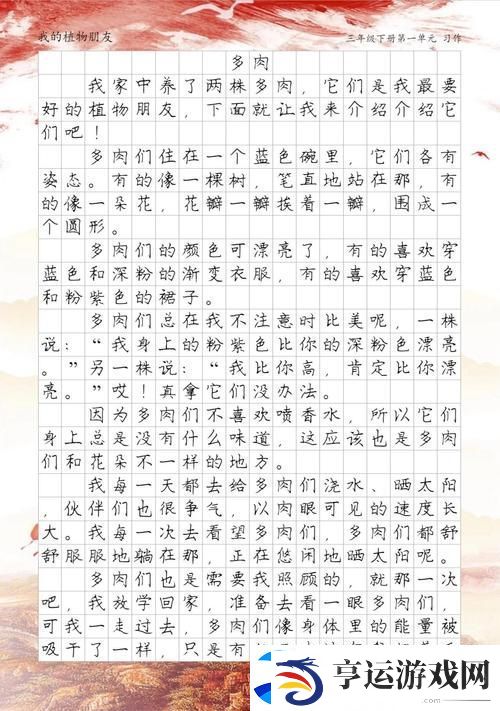 我的植物朋友
三年级下册第一单元 习作
多肉
我家中养了两株多肉，它们是我最要
好的植物朋友，下面就让我来介绍介绍它
们吧！
多肉们住在一个蓝色碗里，它们各有
姿态。有的像一棵树，笔直地站在那，有
的像一朵花，花瓣一瓣挨着一瓣，围成一
个圆形。
多肉们的颜色可漂亮了，有的喜欢穿
蓝色和深粉的渐变衣服，有的喜欢穿蓝色
和粉紫色的裙子。
多肉们总在我不注意时比美呢，一株
说：“我身上的粉紫色比你的深粉色漂亮
。”另一株说：“我比你高，肯定比你漂
亮。”哎！真拿它们没办法。
因为多肉们不喜欢喷香水，所以它们
身上总是没有什么味道，这应该也是多肉
们和花朵不一样的地方。
我每一天都去给多肉们浇水、晒太阳
，伙伴们也很争气，以肉眼可见的速度长
大。我每一次去看望多肉们，多肉们都舒
舒服服地躺在那，正在悠闲地晒太阳呢。
多肉们也是需要我照顾的，就那一次
吧，我放学回家，准备去看一眼多肉们，
可我一走过去，多肉们像身体里的能量被
吸干了一样，只是有
亨运游戏网